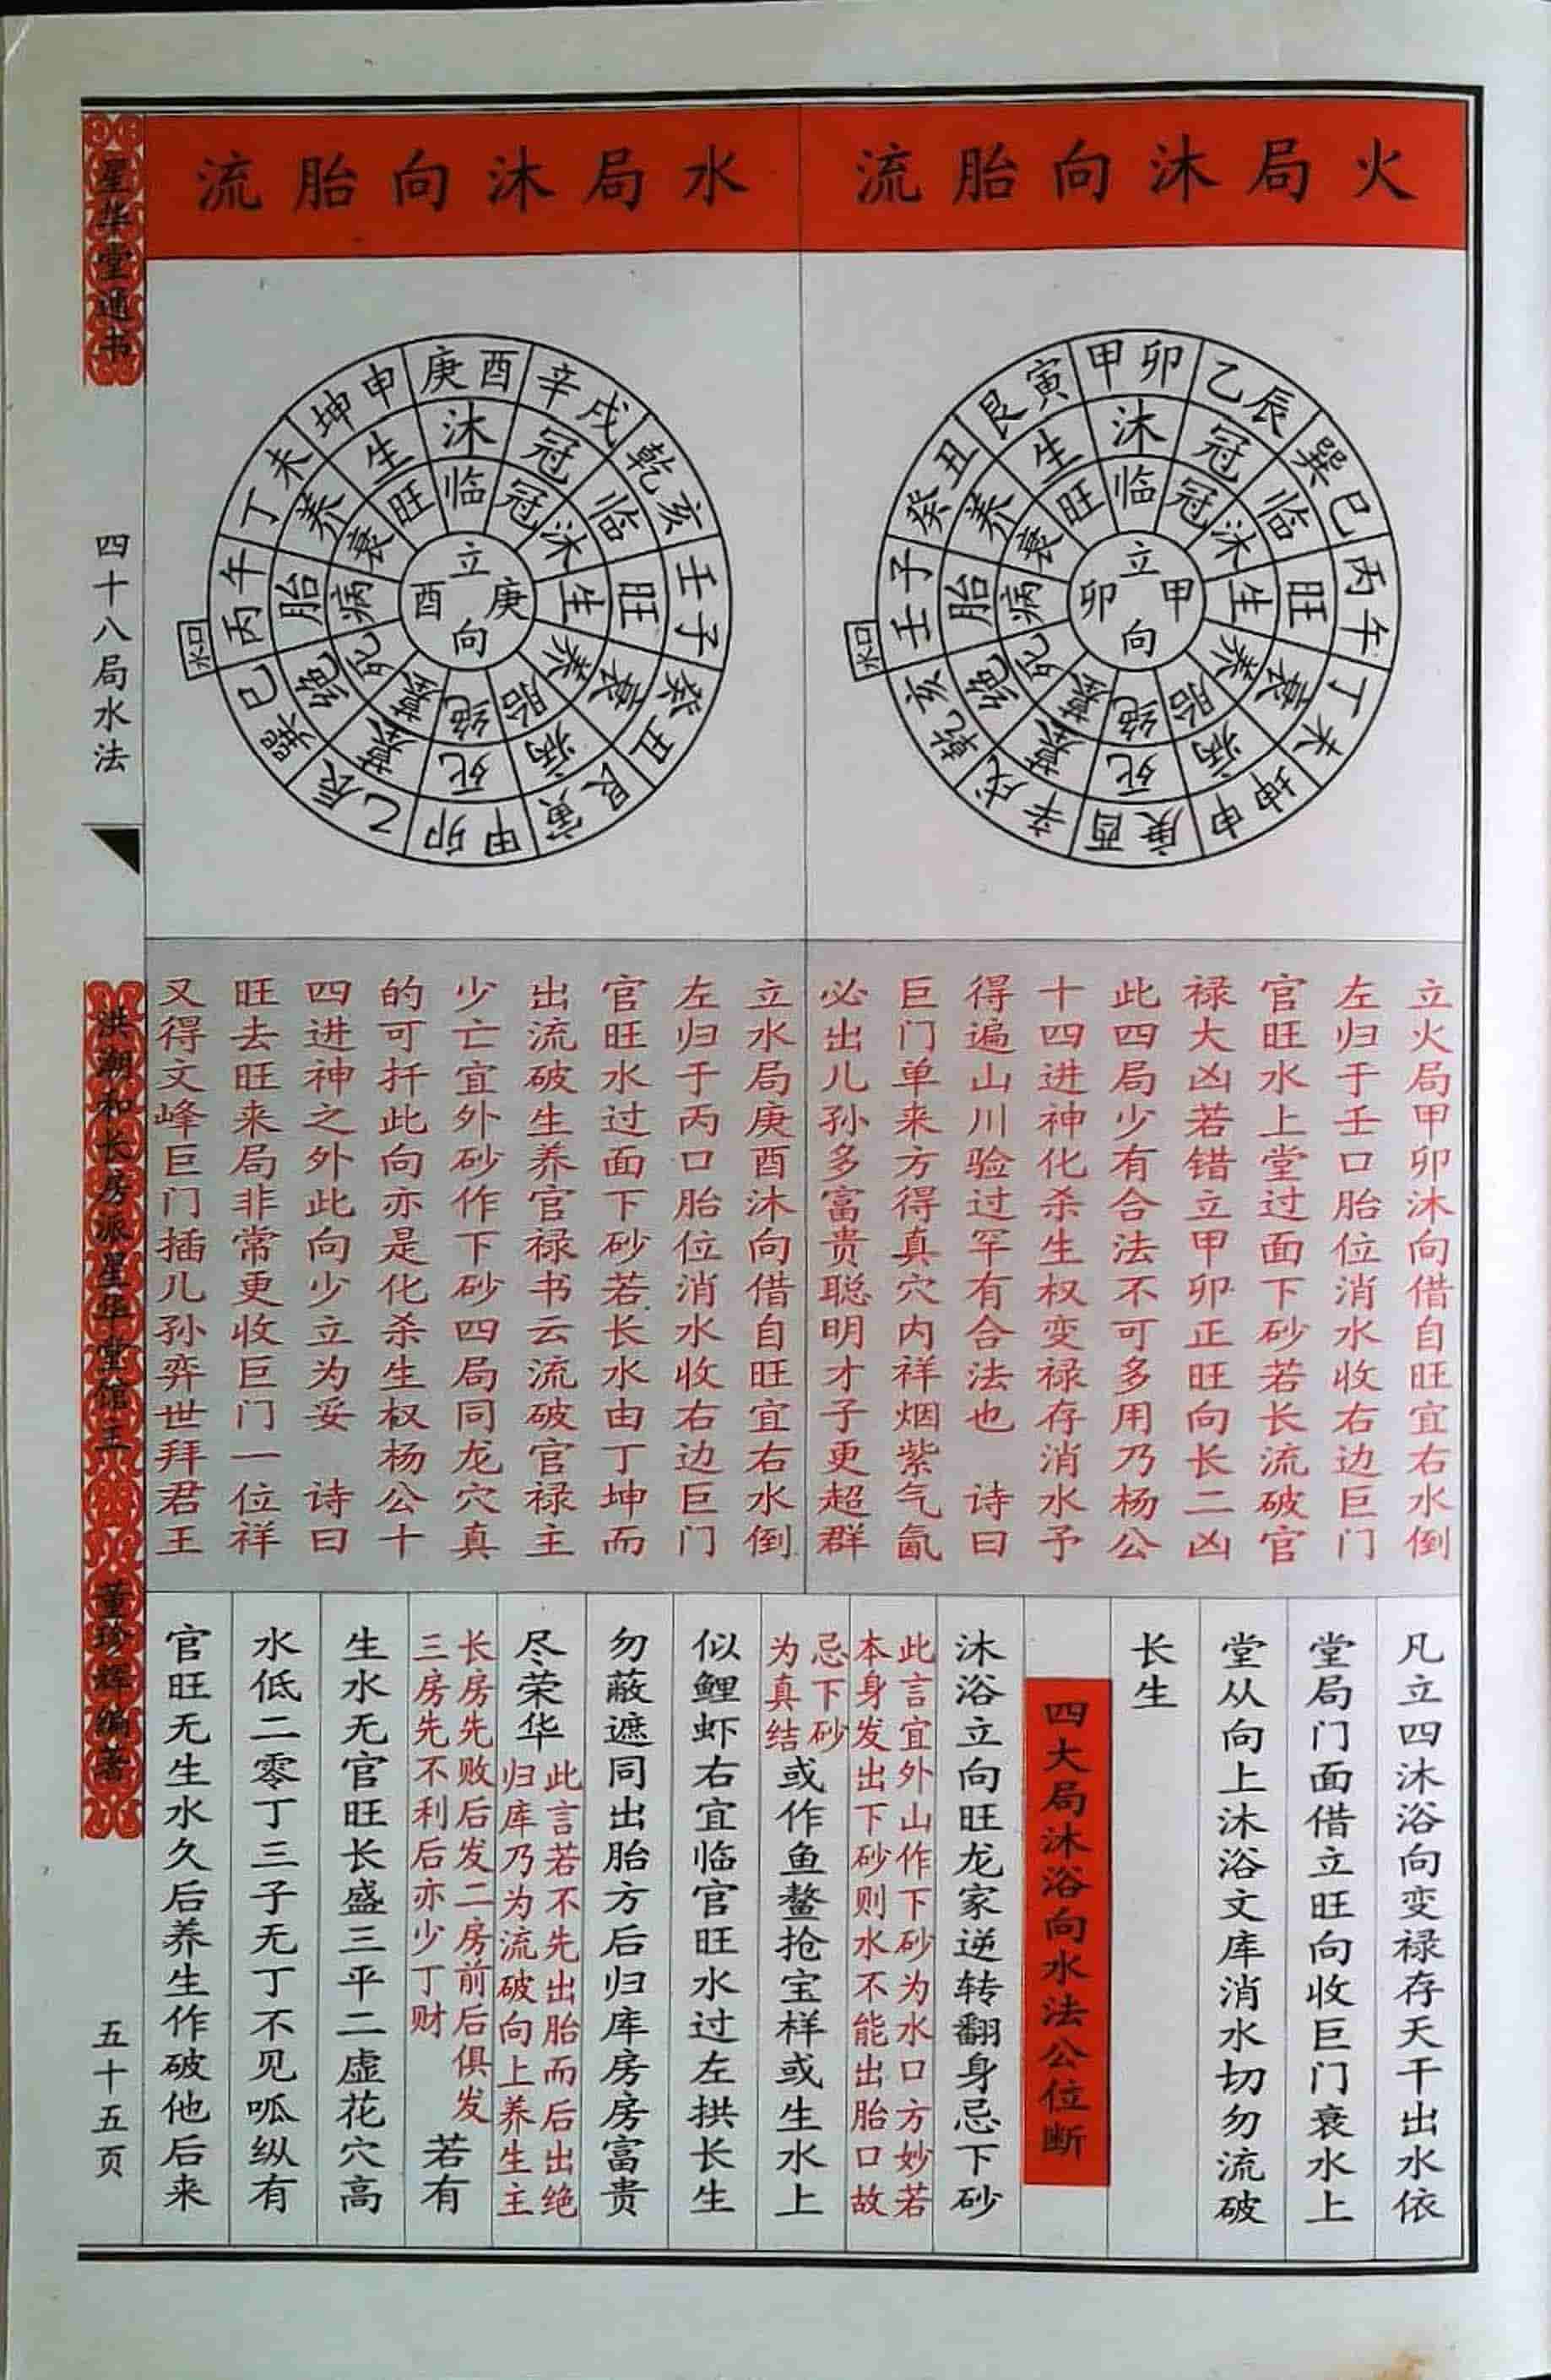 火局沐向胎流
水局沐向胎流
甲卯
乙辰
巽巳
丙午
丁未
坤申
庚酉
辛戌
乾亥
壬子
癸丑
艮寅
沐
冠
临
旺
衰
病
死
墓
绝
胎
养
生
临
冠
沐
生
养
胎
绝
墓
死
病
衰
旺
立
甲
向
卯
水口
庚酉
辛戌
乾亥
壬子
癸丑
艮寅
甲卯
乙辰
巽巳
丙午
丁未
坤申
沐
冠
临
旺
衰
病
死
墓
绝
胎
养
生
临
冠
沐
生
养
胎
绝
墓
死
病
衰
旺
立
庚
向
酉
水口
立火局甲卯沐向借自旺宜右水倒
左归于壬口胎位消水收右边巨门
官旺水上堂过面下砂若长流破官
禄大凶若错立甲卯正旺向长二凶
此四局少有合法不可多用乃杨公
十四进神化杀生权变禄存消水予
得遍山川验过罕有合法也 诗曰
巨门单来方得真穴内祥烟紫气氤
必出儿孙多富贵聪明才子更超群
立水局庚酉沐向借自旺宜右水倒
左归于丙口胎位消水收右边巨门
官旺水过面下砂若长水由丁坤而
出流破生养官禄书云流破官禄主
少亡宜外砂作下砂四局同龙穴真
的可扦此向亦是化杀生权杨公十
四进神之外此向少立为妥 诗曰
旺去旺来局非常更收巨门一位祥
又得文峰巨门插儿孙弈世拜君王
凡立四沐浴向变禄存天干出水依
堂局门面借立旺向收巨门衰水上
堂从向上沐浴文库消水切勿流破
长生
四大局沐浴向水法公位断
沐浴立向旺龙家逆转翻身忌下砂
此言宜外山作下砂为水口方妙若
本身发出下砂则水不能出胎口故
忌下砂
为真结
或作鱼鳌抢宝样或生水上
似鲤虾右宜临官旺水过左拱长生
勿蔽遮同出胎方后归库房房富贵
尽荣华
此言若不先出胎而后出绝
归库乃为流破向上养生主
长房先败后发二房前后俱发
三房先不利后亦少丁财
若有
生水无官旺长盛三平二虚花穴高
水低二零丁三子无丁不见呱纵有
官旺无生水久后养生作破他后来
星华堂通书
四十八局水法
洪潮和长房派星华堂馆主
董珍辉编著
五十五页